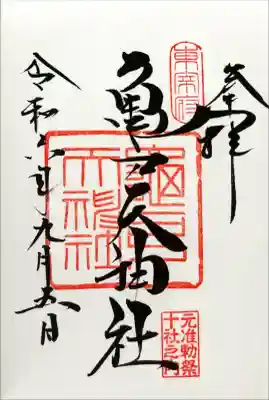 奉拝
東宰府
亀戸天神社
元准勅祭
十社之内
令和六年九月五日